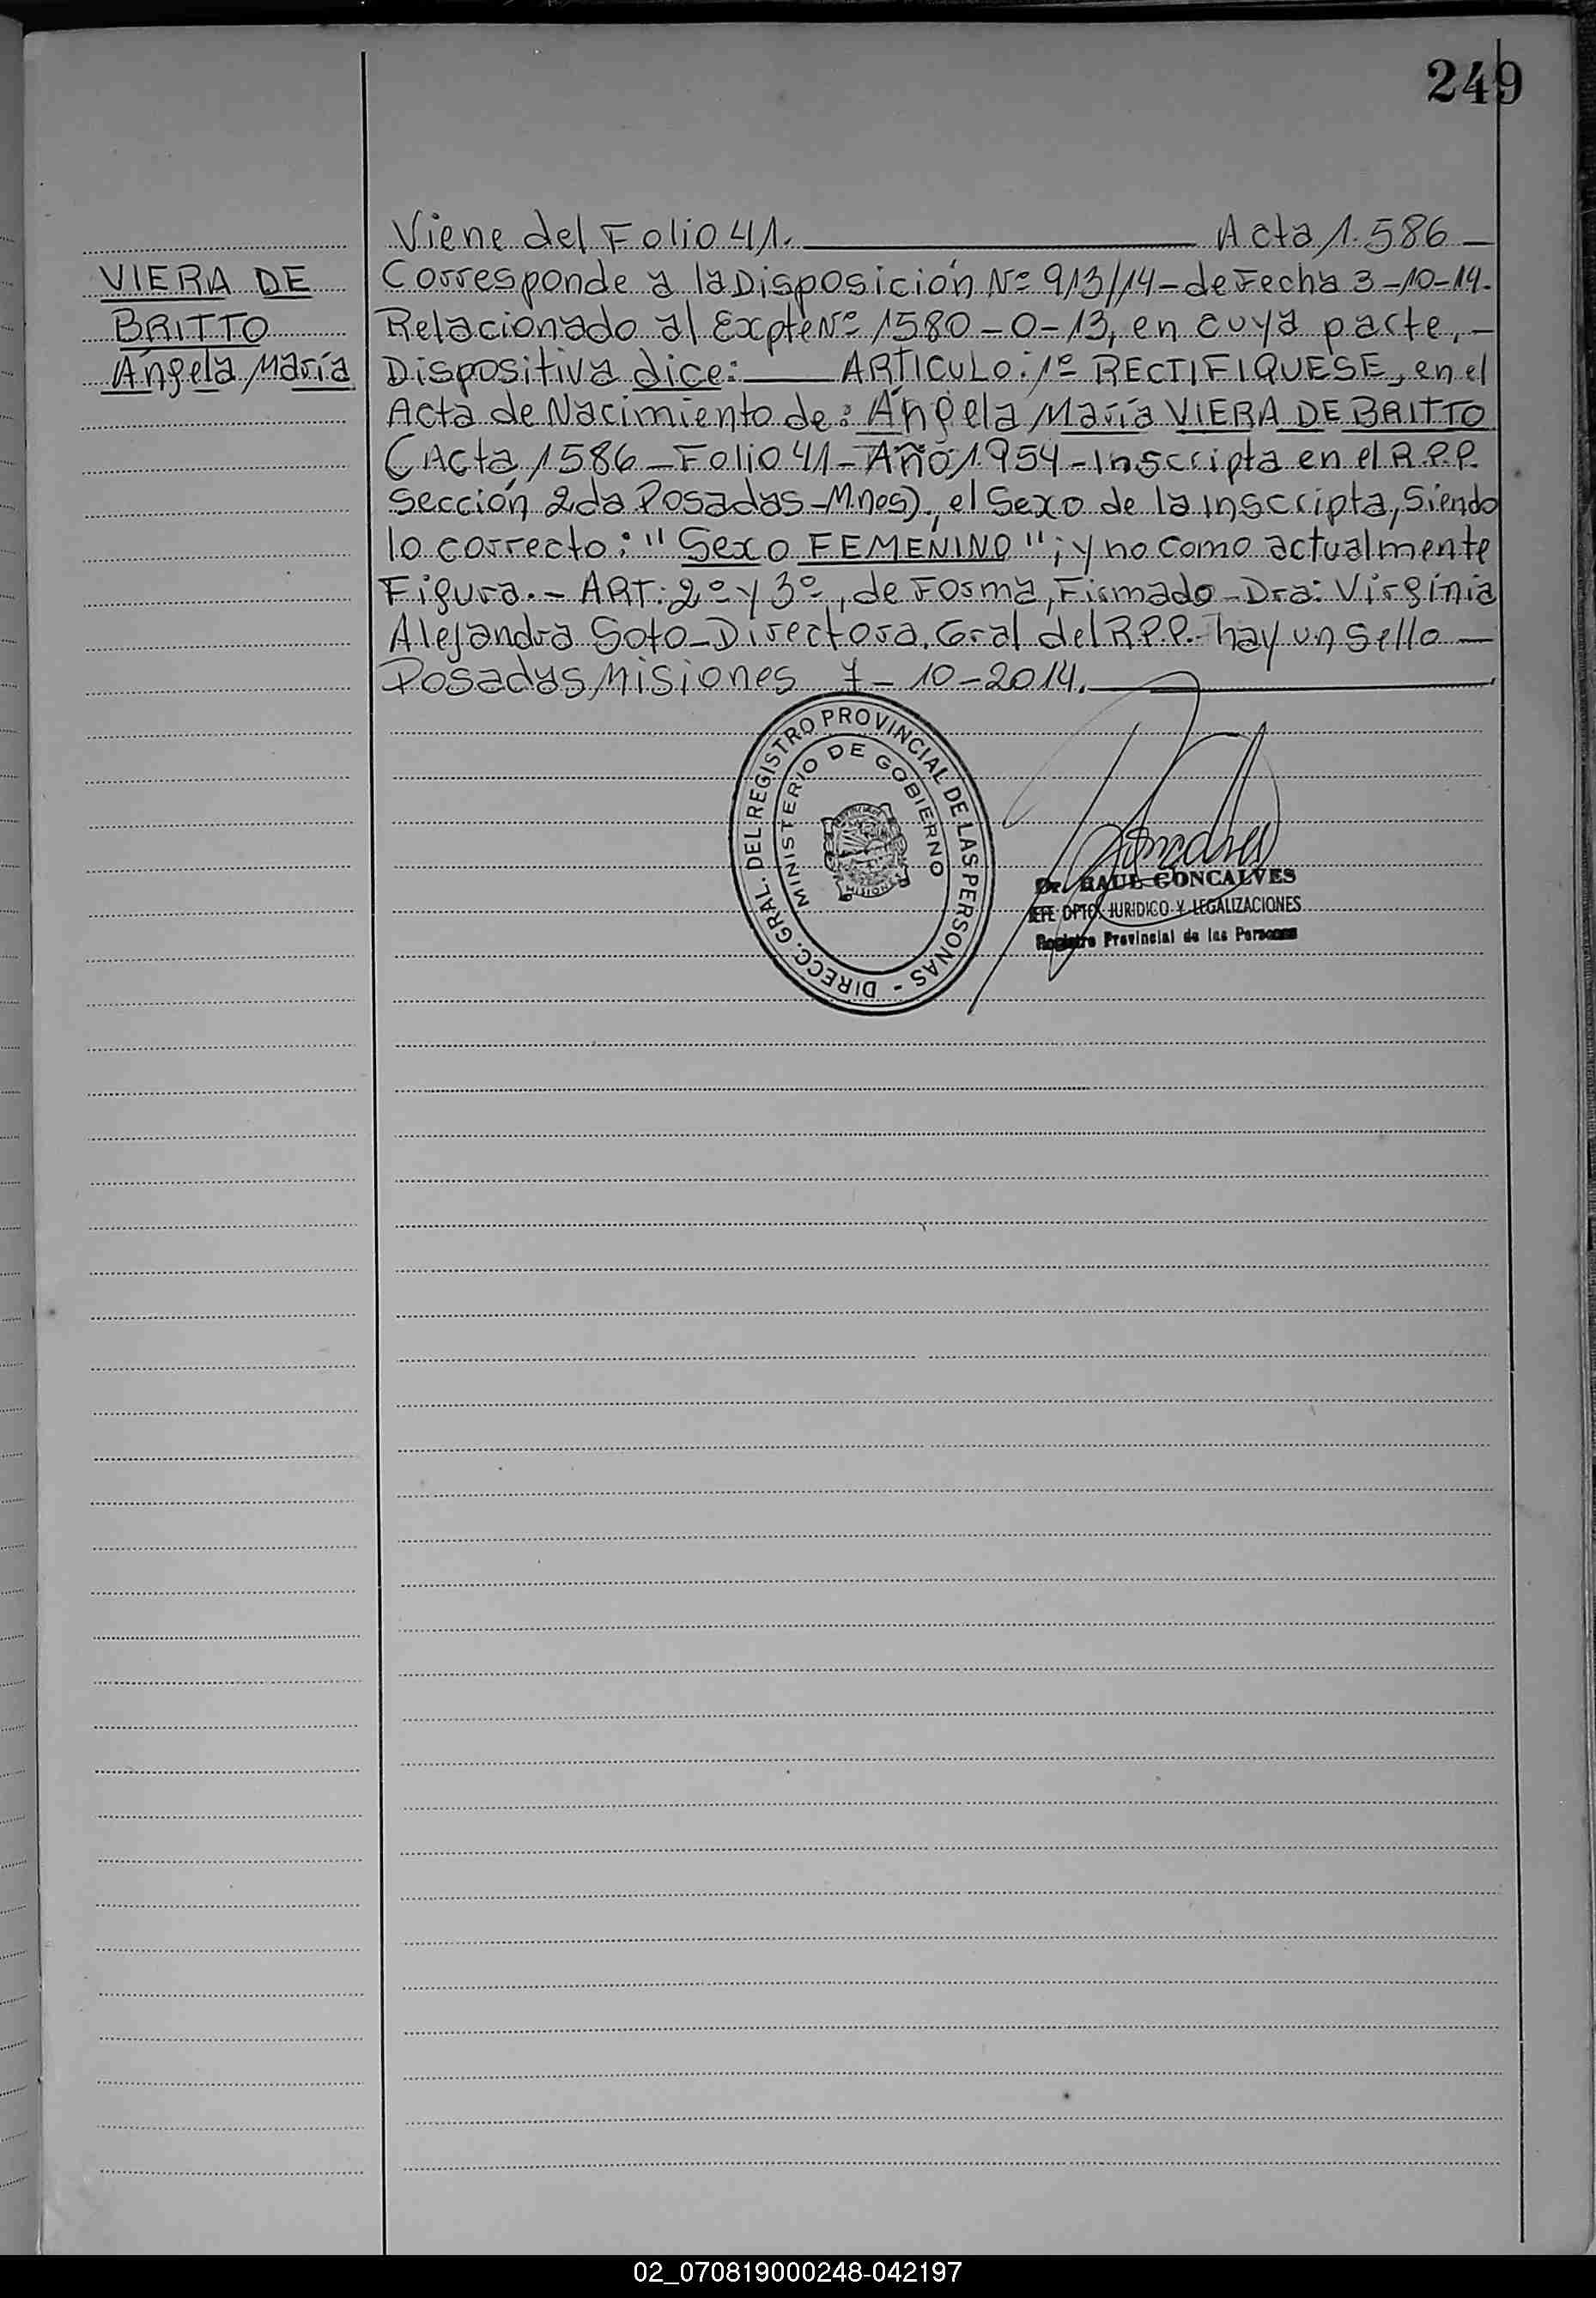 249
Viene del Folio 41. Acta 1.586
VIERA DE
BRITTO
Angela María
Corresponde a la Disposición Nº 913/14 - de Fecha 3-10-14.
Relacionado al Expte Nº 1580-0-13, en cuya parte, -
Dispositiva dice: ARTICULO: 1º RECTIFIQUESE, en el
Acta de Nacimiento de: Angela María VIERA DE BRITTO
(Acta 1586 - Folio 41 - Año 1.954 - Inscripta en el R.P.P.
Sección 2da Posadas - Mnes)., el Sexo de la inscripta, Siendo
lo correcto: "Sexo FEMENINO"; y no como actualmente
Figura. - ART: 2º y 3º, de Forma, Firmado - Dra: Virginia
Alejandra Soto - Directora. Gral del R.P.P. - hay un sello
Posadas Misiones 7-10-2014.
DIRECC. GRAL. DEL REGISTRO PROVINCIAL DE LAS PERSONAS -
MINISTERIO DE GOBIERNO
MISIONES
Dr. RAUL GONCALVES
JEFE DPTO. JURIDICO Y LEGALIZACIONES
Registro Provincial de las Personas
02_070819000248-042197